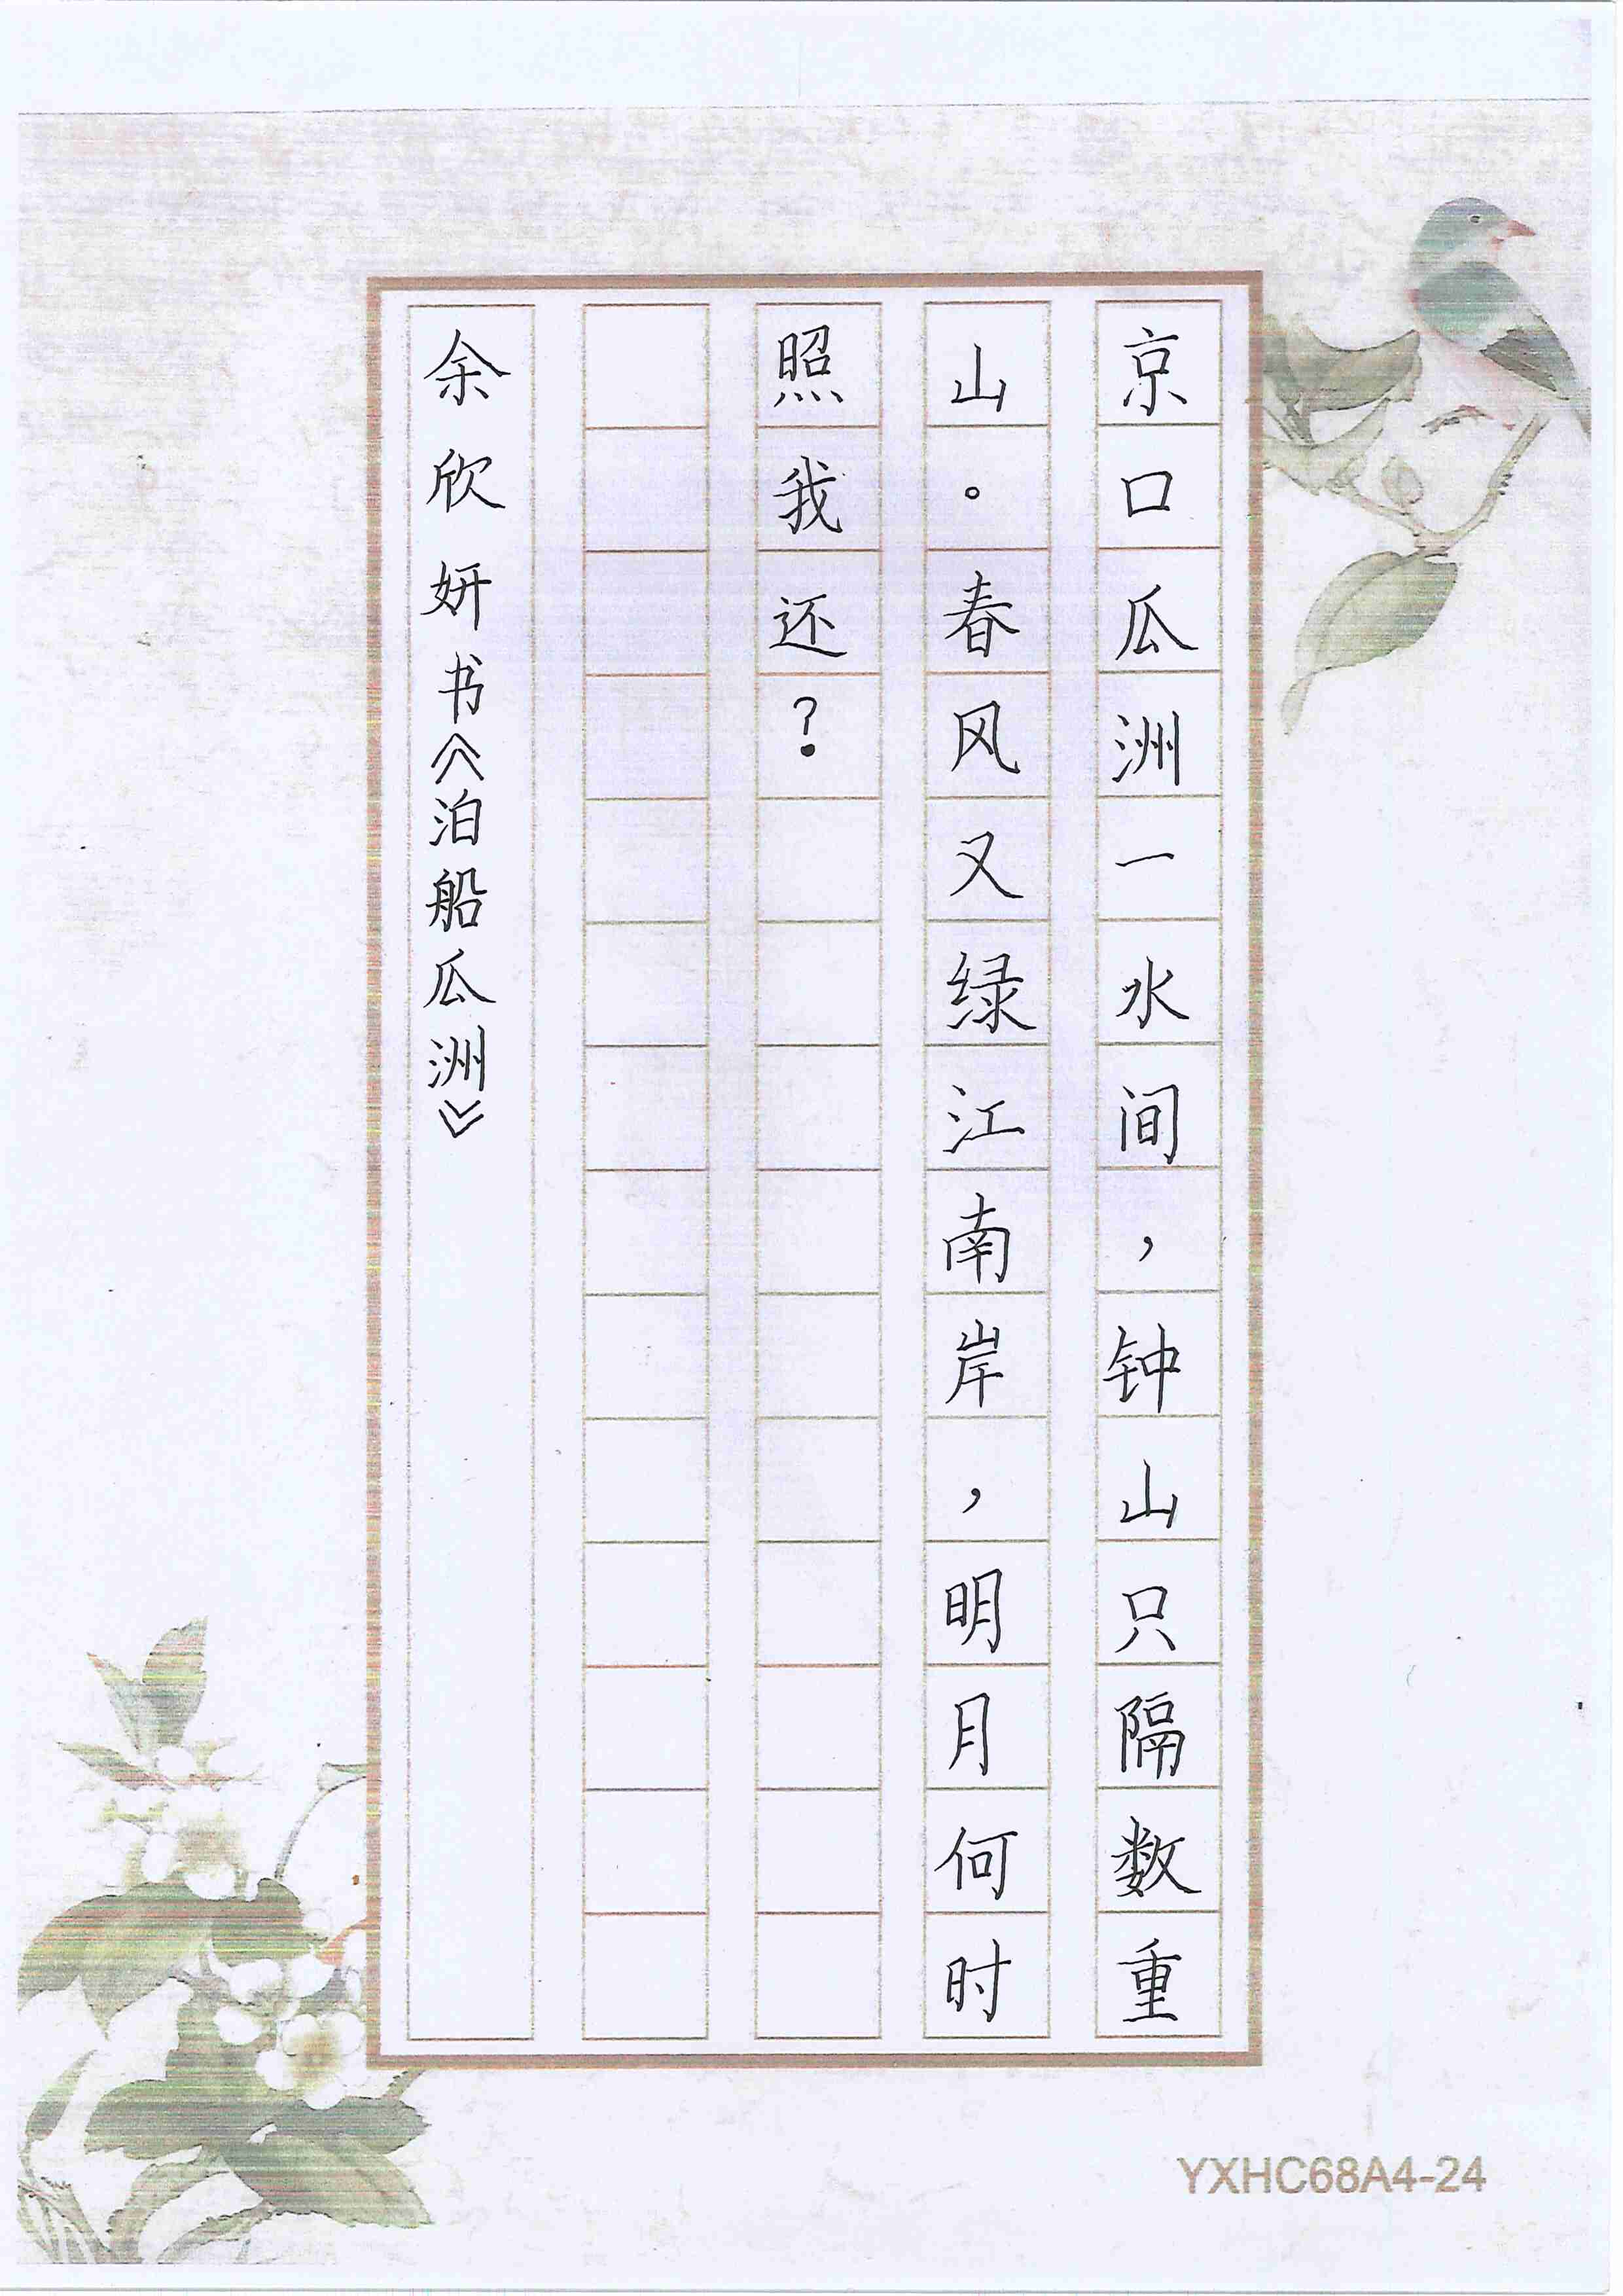 京口瓜洲一水间，钟山只隔数重
山。春风又绿江南岸，明月何时
照我还？
余欣妍书《泊船瓜洲》
YXHC68A4-24